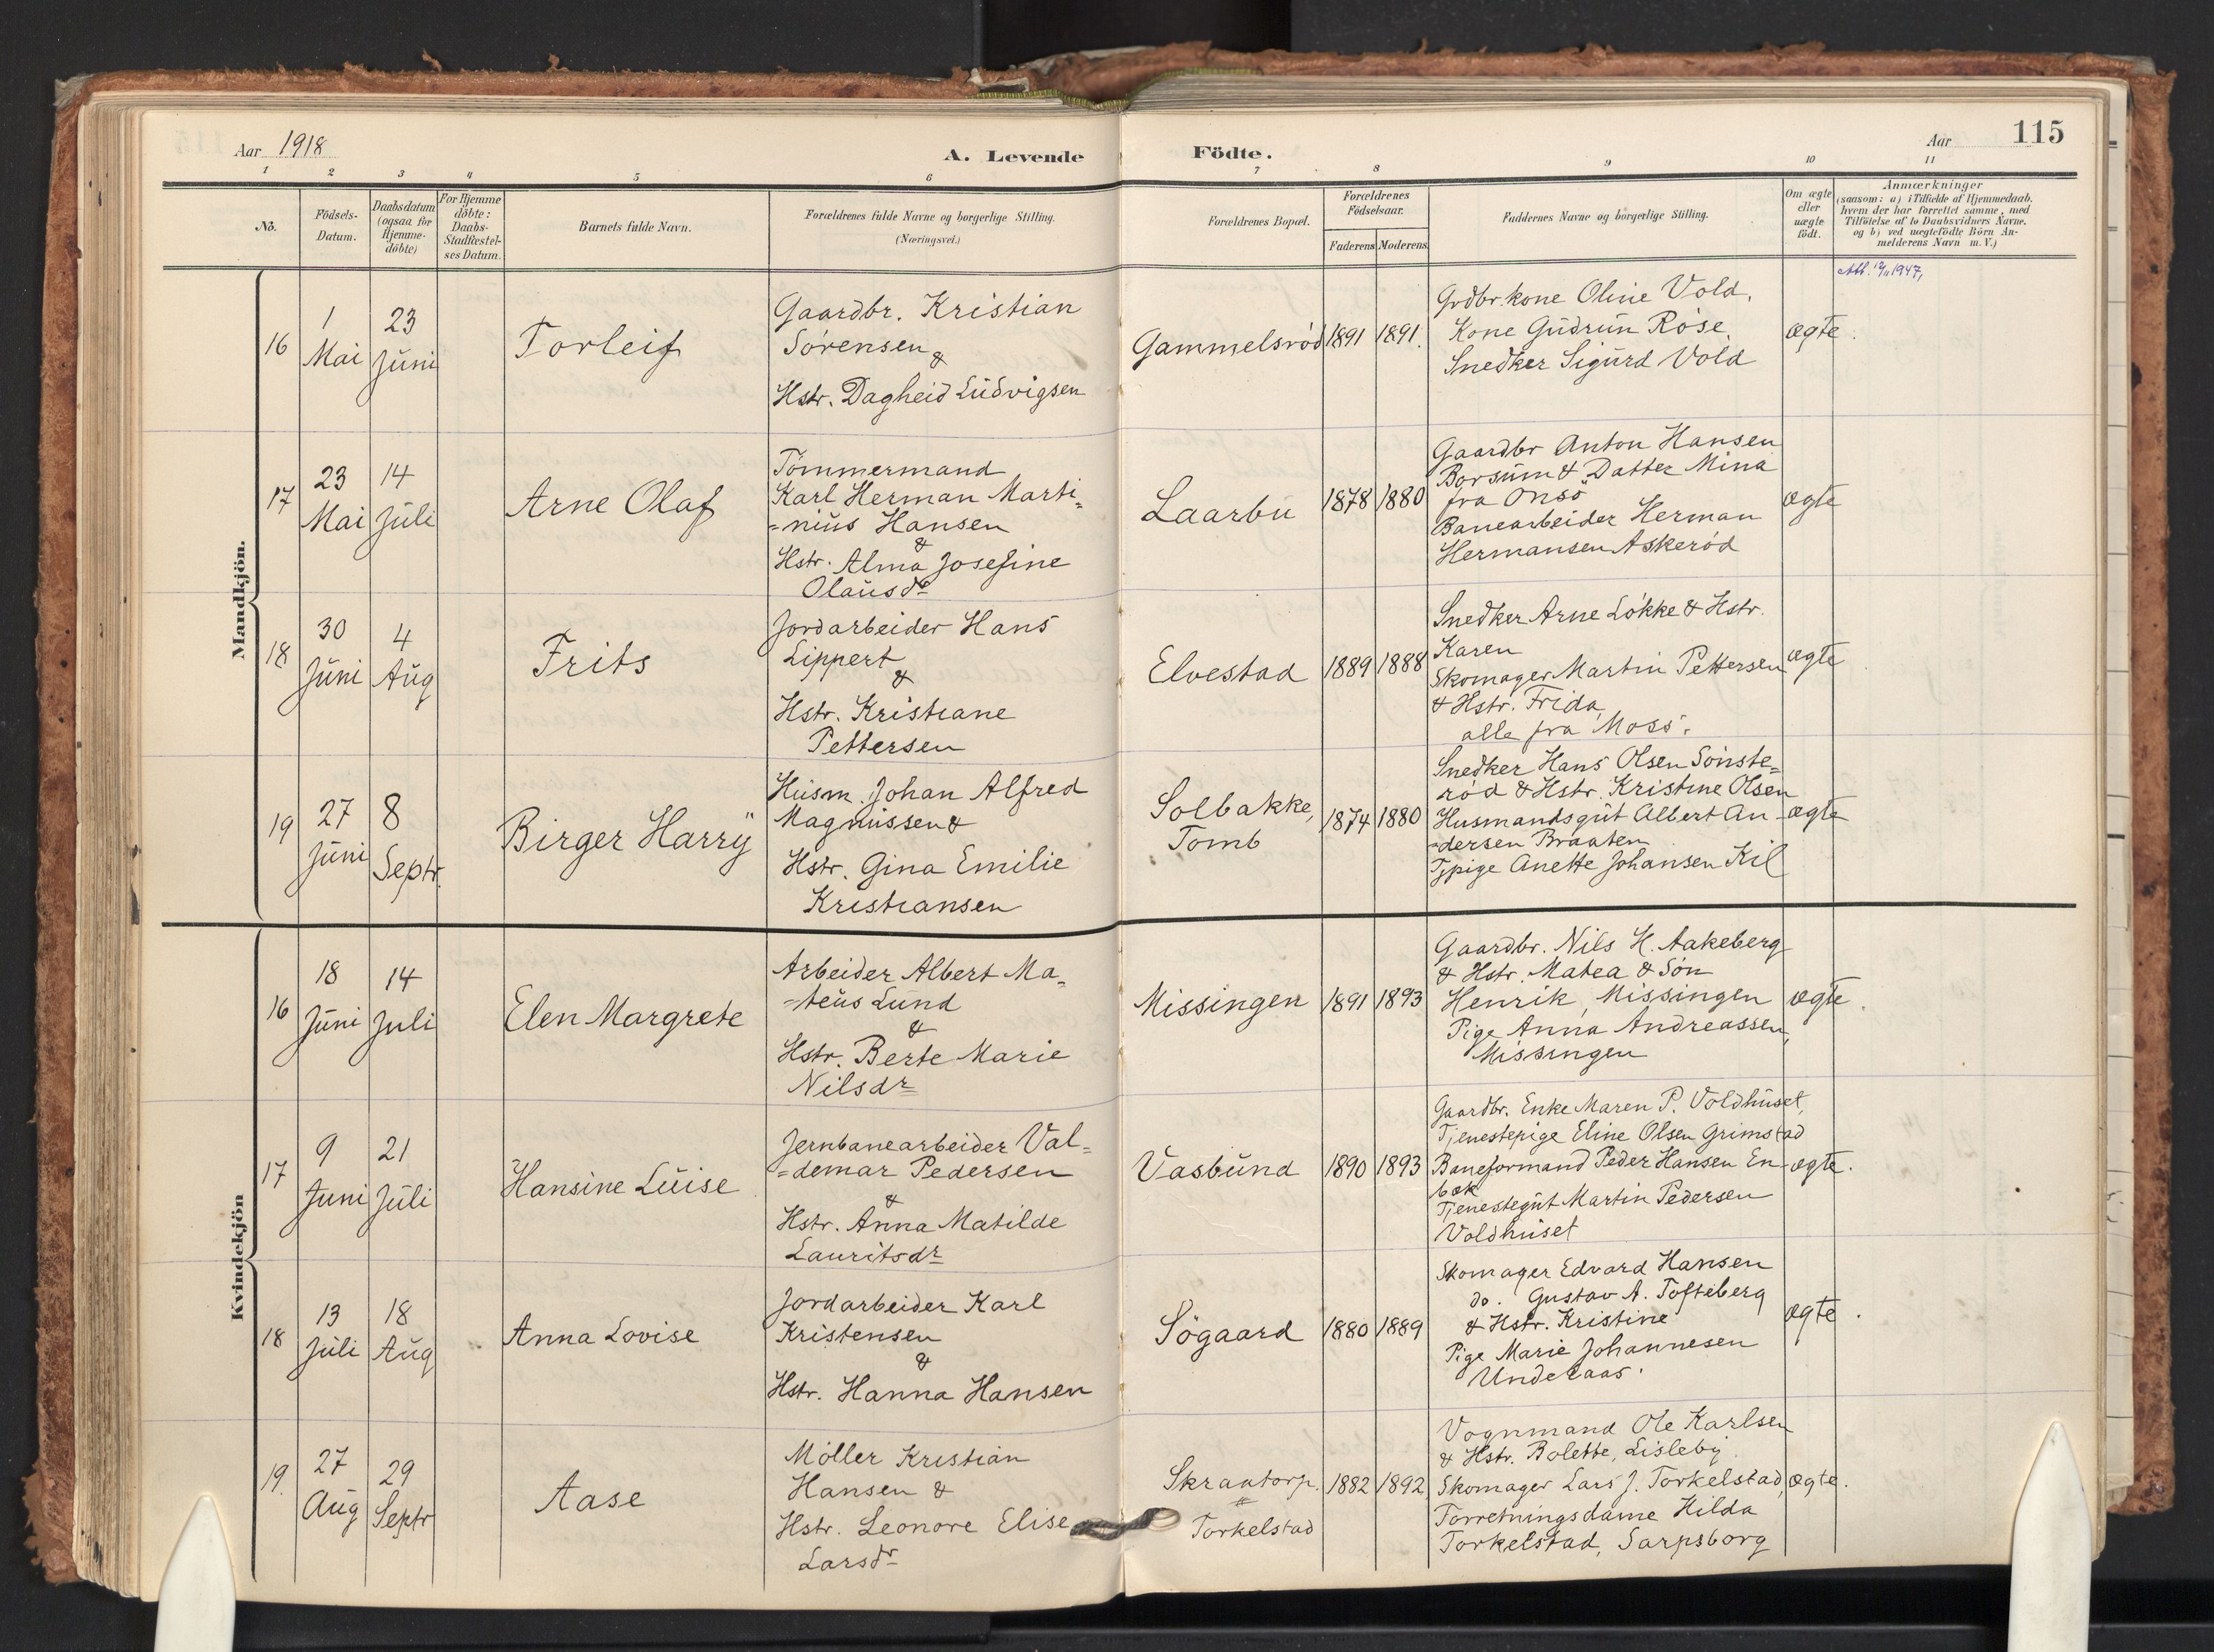 Aar 1918
A. Levende Födte.
Aar
115
1 2 3 4 5 6 7 8 9 10 11
No.
Födsels-
Datum.
Daabsdatum
(ogsaa for
Hjemme-
döbte)
For Hjemme
döbte:
Daabs-
Stadfæstel-
ses Datum.
Barnets fulde Navn.
Forældrenes fulde Navne og borgerlige Stilling.
(Næringsvei.)
Forældrenes Bopæl.
Forældrenes
Födselsaar.
Faderens Moderens
Faddernes Navne og borgerlige Stilling.
Om ægte
eller
uægte
födt.
Anmærkninger
(saasom: a) i Tilfælde af Hjemmedaab.
hvem der har forrettet samme, med
Tilföielse af to Daabsvidners Navne.
og b) ved uægtefödte Börn An-
melderens Navn m. V.)
Mandkjön.
16
1
Mai
23
Juni
Torleif
Gaardbr. Kristian
Sörensen
&
Hstr. Dagheid Ludvigsen
Gammelsröd
1891
1891.
Grdbr.kone Oline Vold,
Kone Gudrun Röse,
Snedker Sigurd Vold
ægte.
1947,
17
23
Mai
14
Juli
Arne Olaf
Tömmermand
Karl Herman Marti=
=nius Hansen
&
Hstr. Alma Josefine
Olausdr
Laarbu
1878
1880
Gaardbr Anton Hansen
Borsum & Datter Mina
fra Onsö
Banearbeider Herman
Hermansen Askeröd
ægte
18
30
Juni
4
Aug
Frits
Jordarbeider Hans
Lippert
&
Hstr. Kristiane
Pettersen
Elvestad
1889
1888
Snedker Arne Lökke & Hstr.
Karen
Skomager Martin Pettersen
& Hstr. Frida,
alle fra Moss.
ægte
19
27
Juni
8
Septr.
Birger Harry
Husm. Johan Alfred
Magnussen &
Hstr. Gina Emilie
Kristiansen
Solbakke,
Tomb
1874
1880
Snedker Hans Olsen Sönste=
röd & Hstr. Kristine Olsen
Husmandsgut Albert An-
-dersen Braaten
Tjpige Anette Johansen Kil
ægte
Kvindekjön
16
18
Juni
14
Juli
Elen Margrete
Arbeider Albert Ma-
-teus Lund
&
Hstr. Berte Marie
Nilsdr
Missingen
1891
1893
Gaardbr. Nils H. Aakeberg
& Hstr. Matea & Sön
Henrik, Missingen
Pige Anna Andreassen,
Missingen
ægte.
17
9
Juni
21
Juli
Hansine Luise
Jernbanearbeider Val=
=demar Pedersen
&
Hstr. Anna Matilde
Lauritsdr
Vasbund
1890
1893
Gaardbr. Enke Maren P. Voldhuset,
Tjenestepige Eline Olsen Grimstad
Baneformand Peder Hansen En-
bæk
Tjenestegut Martin Pedersen
Voldhuset
ægte.
18
13
Juli
18
Aug
Anna Lovise
Jordarbeider Karl
Kristensen
&
Hstr. Hanna Hansen
Sögaard
1880
1889
Skomager Edvard Hansen
do. Gustav A. Tofteberg
& Hstr. Kristine
Pige Marie Johannesen
Underaas.
ægte.
19.
27
Aug
29
Septr
Aase
Möller Kristian
Hansen &
Hstr. Leonore Elise
Larsdr
Skraatorp.
Torkelstad
1882
1892,
Vognmand Ole Karlsen
& Hstr. Bolette, Lisleby
Skomager Lars J. Torkelstad,
Forretningsdame Hilda
Torkelstad, Sarpsborg
ægte.